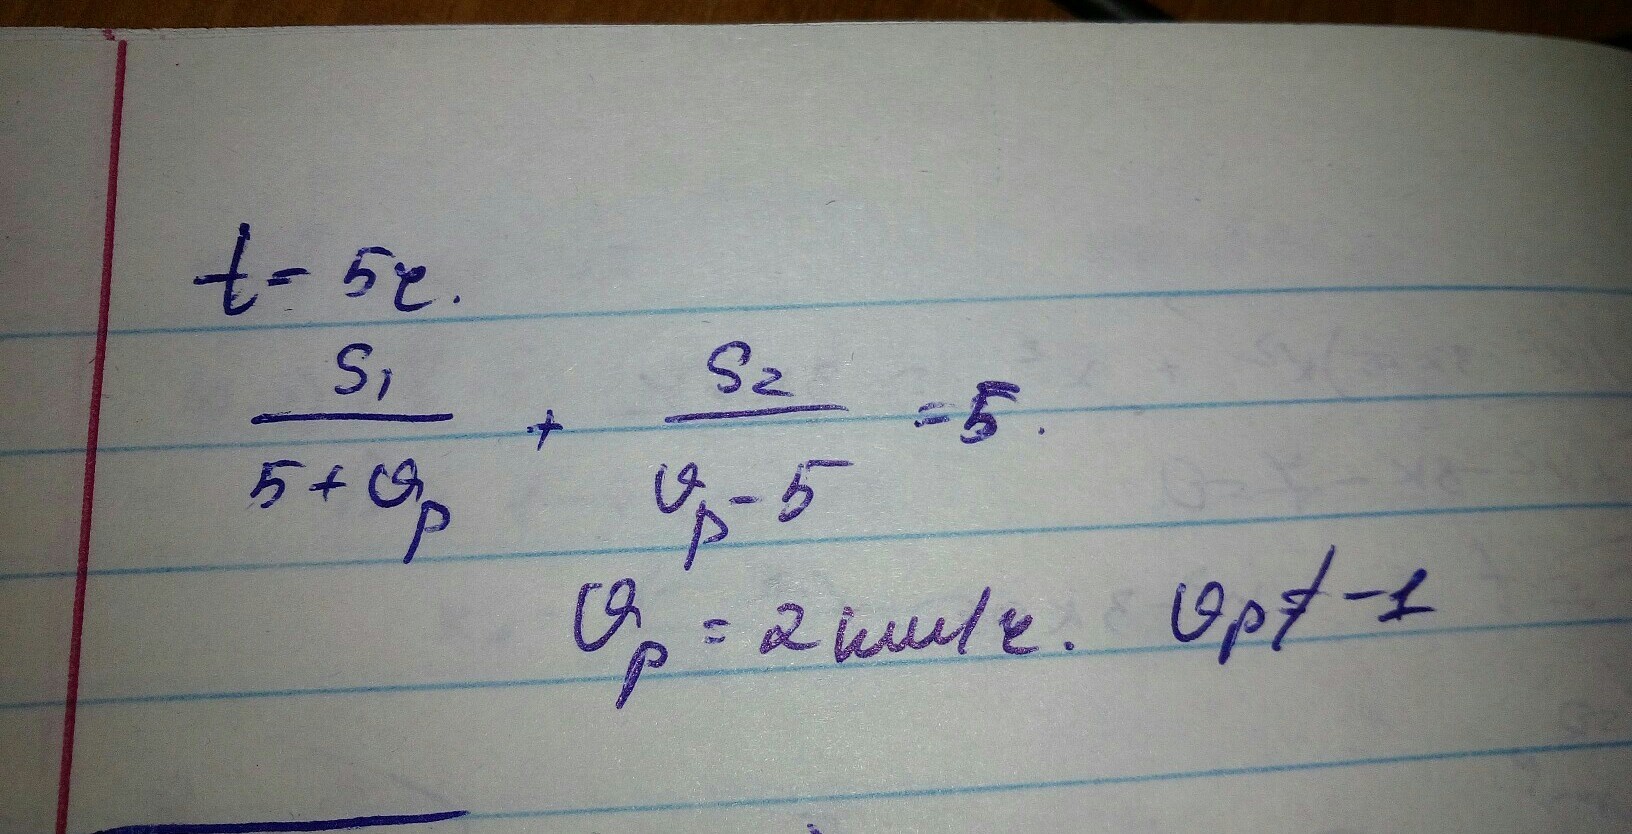 t = 5ч.
S₁ / (5 + ϑₚ) + S₂ / (ϑₚ - 5) = 5.
ϑₚ = 2 км/ч. ϑₚ ≠ -1